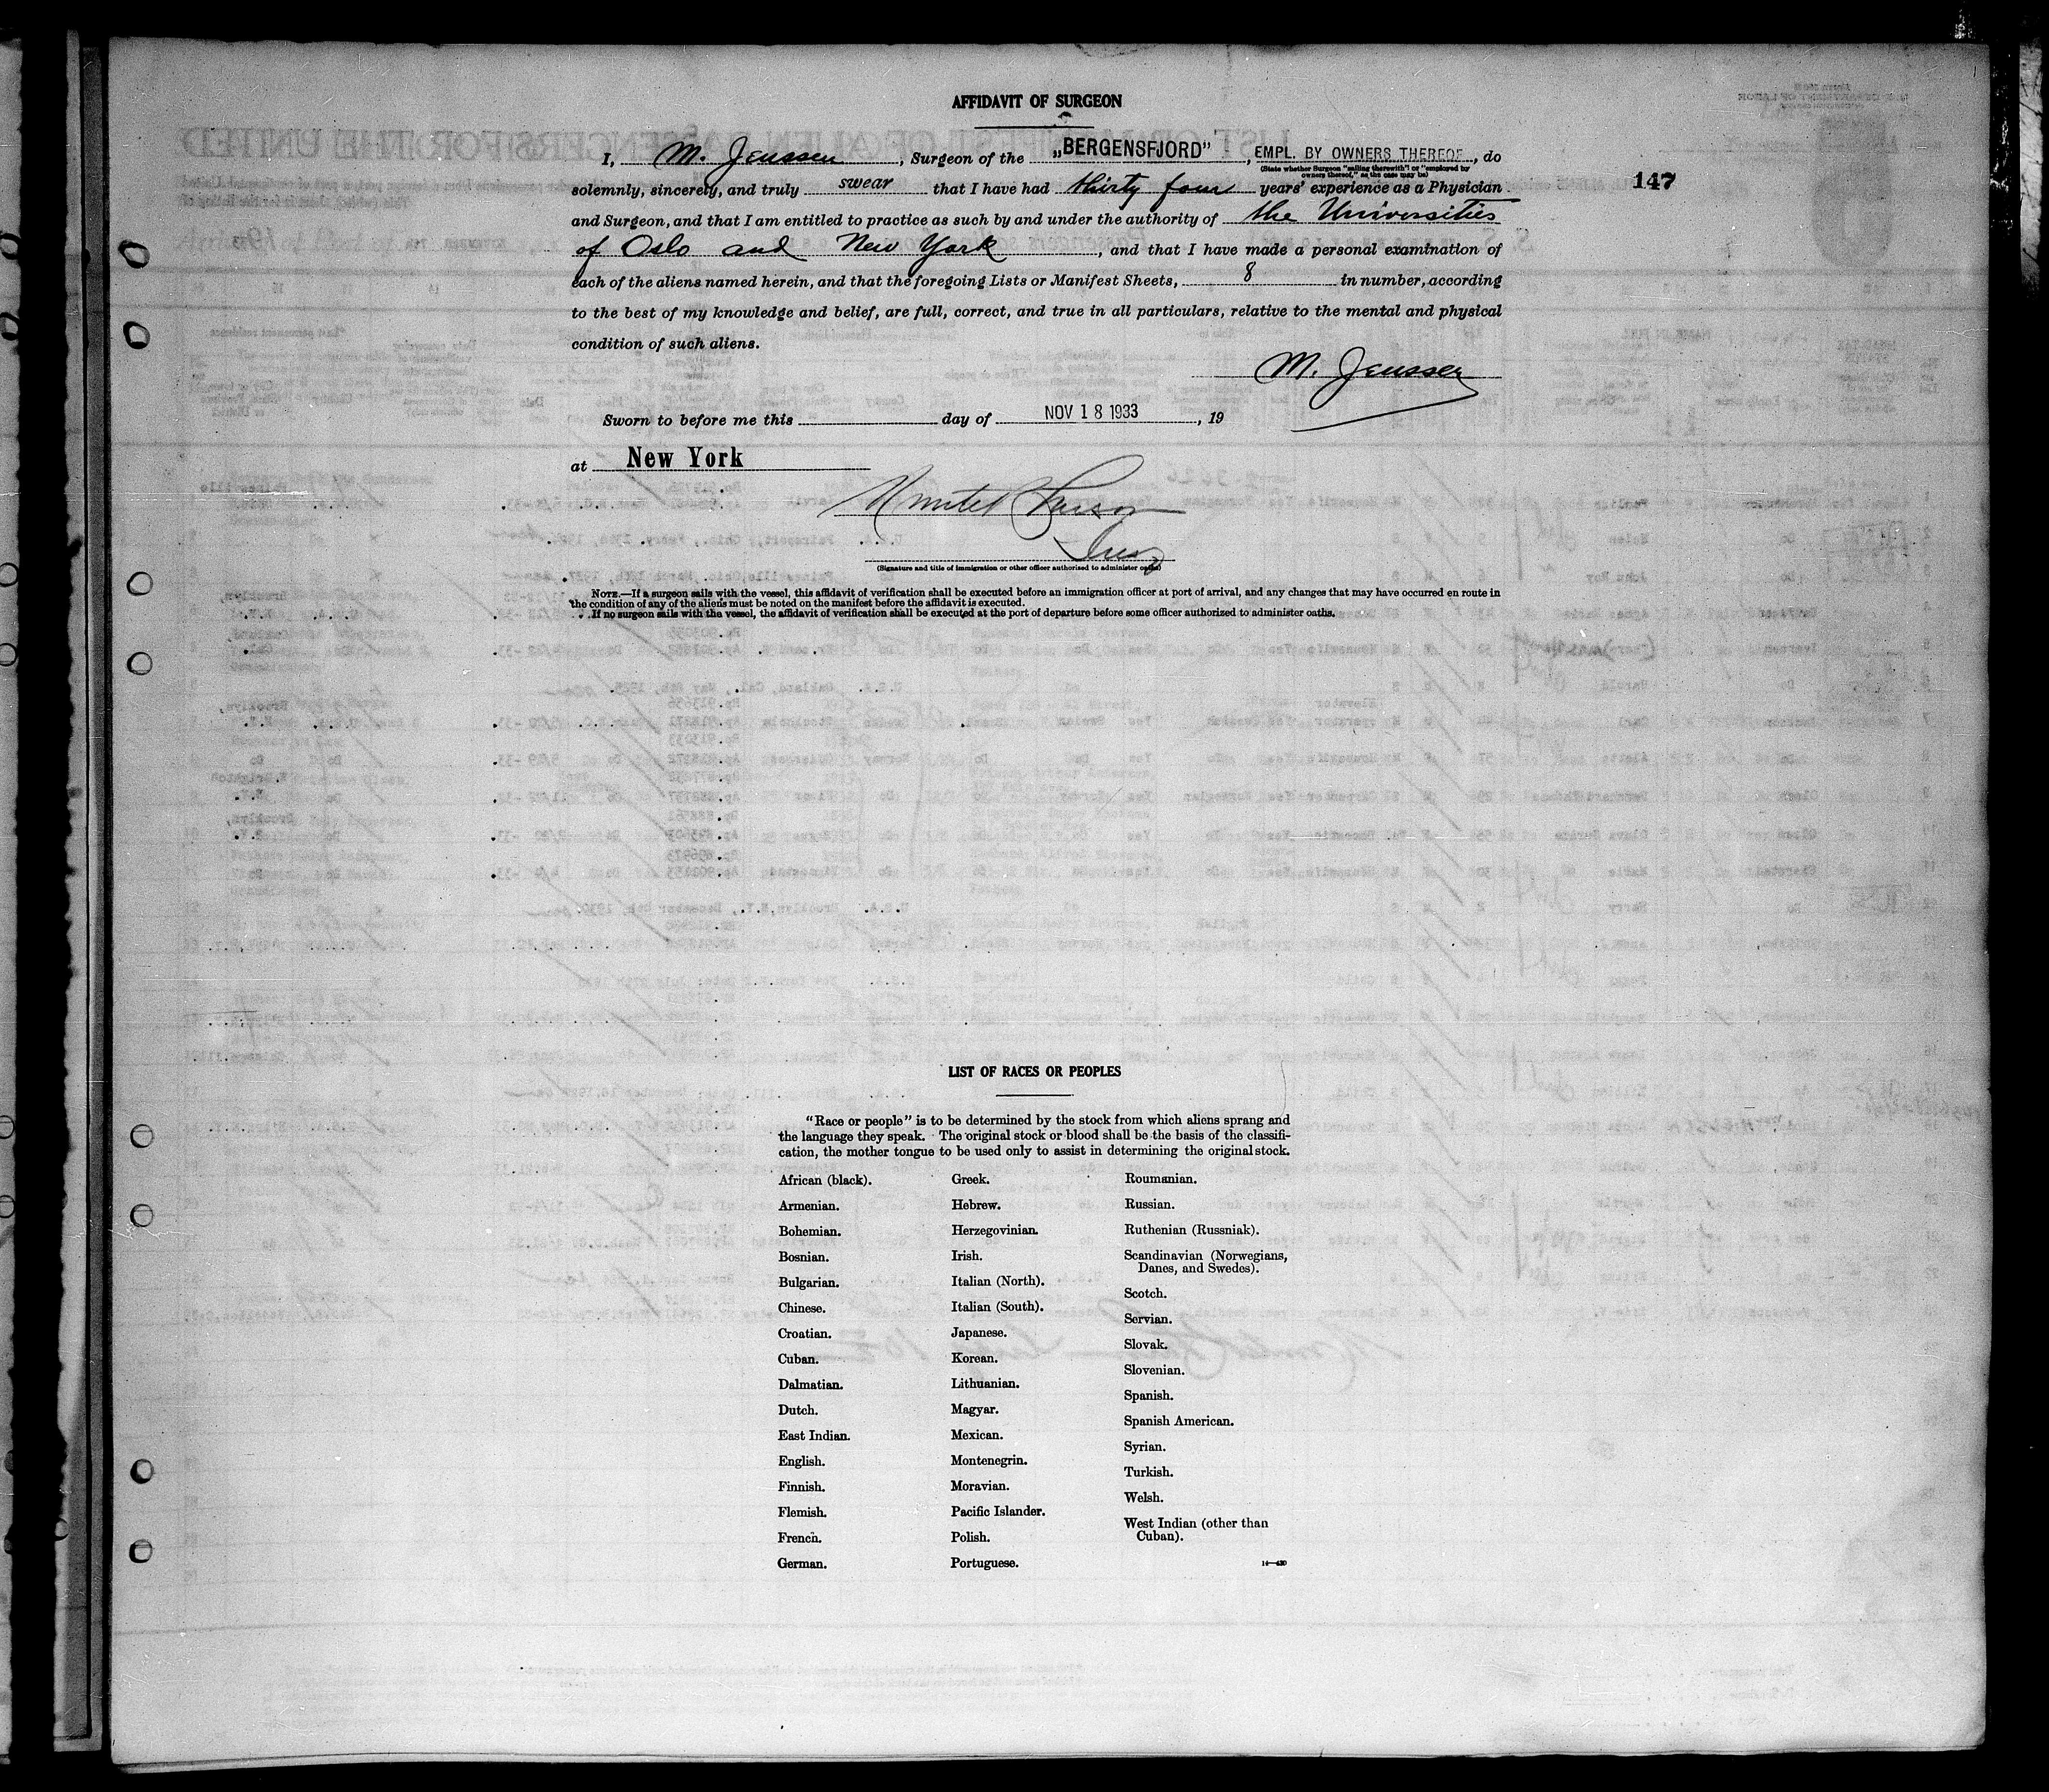 AFFIDAVIT OF SURGEON
I, M. Jenssen, Surgeon of the „BERGENSFJORD", EMPL. BY OWNERS THEREOF, do
(State whether Surgeon "sailing therewith" or "employed by
owners thereof," as the case may be)
solemnly, sincerely, and truly swear that I have had thirty four years' experience as a Physician
147
and Surgeon, and that I am entitled to practice as such by and under the authority of the Universities
of Oslo and New York, and that I have made a personal examination of
each of the aliens named herein, and that the foregoing Lists or Manifest Sheets, 8 in number, according
to the best of my knowledge and belief, are full, correct, and true in all particulars, relative to the mental and physical
condition of such aliens.
M. Jenssen
Sworn to before me this day of NOV 18 1933, 19
at New York
(Signature and title of immigration or other officer authorized to administer oaths)
NOTE.—If a surgeon sails with the vessel, this affidavit of verification shall be executed before an immigration officer at port of arrival, and any changes that may have occurred en route in
the condition of any of the aliens must be noted on the manifest before the affidavit is executed.
If no surgeon sails with the vessel, the affidavit of verification shall be executed at the port of departure before some officer authorized to administer oaths.
LIST OF RACES OR PEOPLES
"Race or people" is to be determined by the stock from which aliens sprang and
the language they speak. The original stock or blood shall be the basis of the classifi-
cation, the mother tongue to be used only to assist in determining the original stock.
African (black).
Armenian.
Bohemian.
Bosnian.
Bulgarian.
Chinese.
Croatian.
Cuban.
Dalmatian.
Dutch.
East Indian.
English.
Finnish.
Flemish.
French.
German.
Greek.
Hebrew.
Herzegovinian.
Irish.
Italian (North).
Italian (South).
Japanese.
Korean.
Lithuanian.
Magyar.
Mexican.
Montenegrin.
Moravian.
Pacific Islander.
Polish.
Portuguese.
Roumanian.
Russian.
Ruthenian (Russniak).
Scandinavian (Norwegians,
Danes, and Swedes).
Scotch.
Servian.
Slovak.
Slovenian.
Spanish.
Spanish American.
Syrian.
Turkish.
Welsh.
West Indian (other than
Cuban).